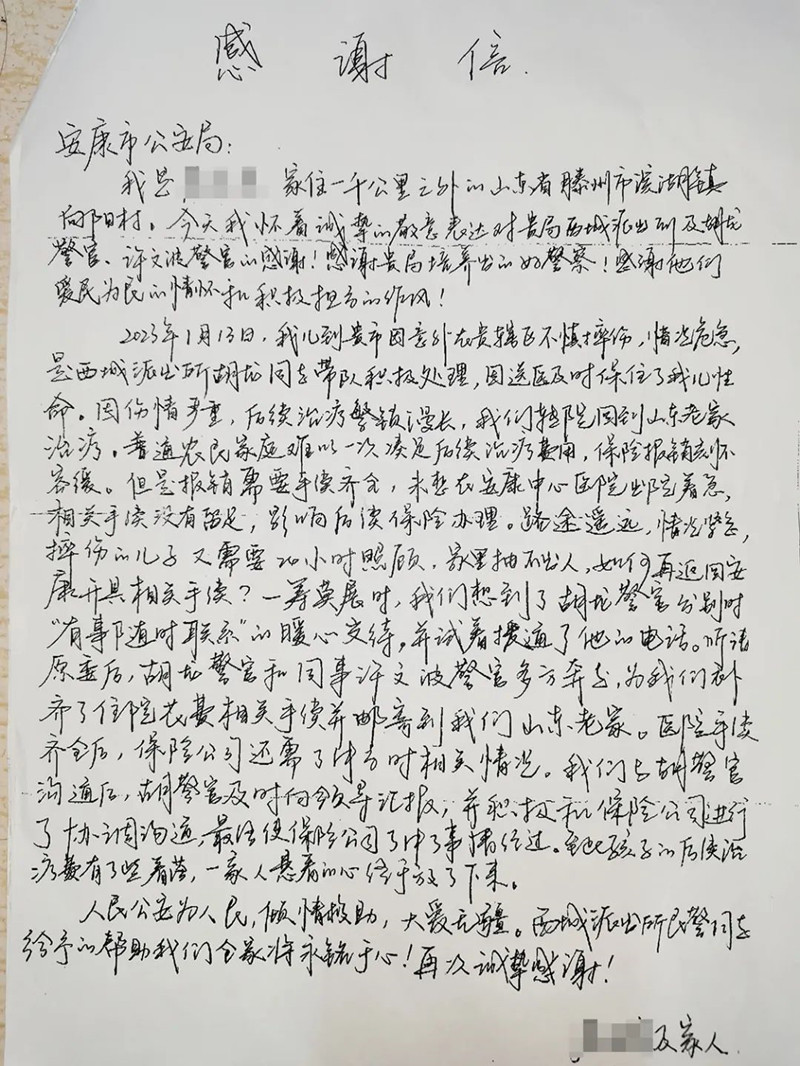 感谢信.
安康市公安局:
我是 家住一千公里之外的山东省滕州市滨湖镇
向阳村。今天我怀着诚挚的敬意表达对贵局西城派出所及胡龙
警官、许文波警官的感谢!感谢贵局培养出的好警察!感谢他们
爱民为民的情怀和积极担当的作风!
2023年1月13日,我儿到贵市因意外在贵辖区不慎摔伤,情况危急,
是西城派出所胡龙同志带队积极处理,因送医及时保住了我儿性
命。因伤情严重,后续治疗繁琐漫长,我们转院回到山东老家
治疗。普通农民家庭难以一次凑足后续治疗费用,保险报销刻不
容缓。但是报销需要手续齐全,未想在安康中心医院出院着急,
相关手续没有留足,影响后续保险办理。路途遥远,情况紧急,
摔伤的儿子又需要24小时照顾,家里抽不出人,如何再返回安
康开具相关手续?一筹莫展时,我们想到了胡龙警官分别时
“有事随时联系”的暖心交待。并试着拨通了他的电话。听清
原委后,胡龙警官和同事许文波警官多方奔走,为我们补
齐了住院花费相关手续并邮寄到我们山东老家。医院手续
齐全后,保险公司还需了解当时相关情况。我们与胡警官
沟通后,胡警官及时向领导汇报,并积极和保险公司进行
了协调沟通,最终使保险公司了解了事情经过。至此孩子的后续治
疗费有了些着落,一家人悬着的心终于放了下来。
人民公安为人民,倾情救助,大爱无疆。西城派出所民警同志
给予的帮助我们全家将永铭于心!再次诚挚感谢!
及家人